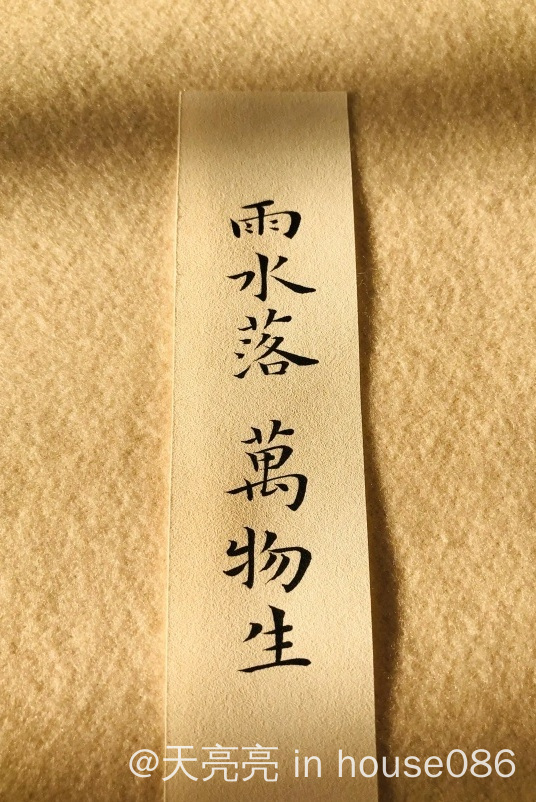 雨水落 萬物生
@天亮亮 in house086